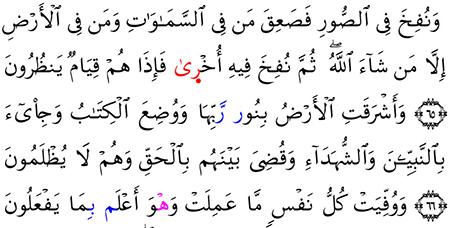 وَنُفِخَ فِي ٱلصُّورِ فَصَعِقَ مَن فِي ٱلسَّمَـٰوَٰتِ وَمَن فِي ٱلْأَرْضِ
إِلَّا مَن شَآءَ ٱللَّهُۖ ثُمَّ نُفِخَ فِيهِ أُخْرَىٰ فَإِذَا هُمْ قِيَامٌ يَنظُرُونَ
﴿٦٥﴾ وَأَشْرَقَتِ ٱلْأَرْضُ بِنُورِ رَبِّهَا وَوُضِعَ ٱلْكِتَـٰبُ وَجِا۟ىٓءَ
بِٱلنَّبِيِّـۧنَ وَٱلشُّهَدَآءِ وَقُضِيَ بَيْنَهُم بِٱلْحَقِّ وَهُمْ لَا يُظْلَمُونَ
﴿٦٦﴾ وَوُفِّيَتْ كُلُّ نَفْسٍ مَّا عَمِلَتْ وَهْوَ أَعْلَم بِمَا يَفْعَلُونَ